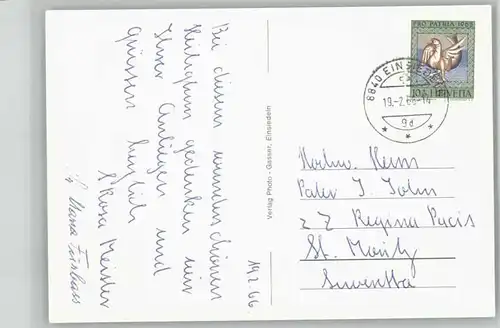 19.2.66
Bei diesem wunderschönen
Heiligtum gedenken wir
Ihrer Anliegen und
grüssen herzlich
Rosa Meister
Maria
Verlag Photo - Gasser, Einsiedeln
PRO PATRIA 1965
10+ HELVETIA
8840 EINSIEDELN
19.-2.66-14
Hochw. Herrn
Pater J. John
z Z Regina Pacis
St. Moritz
Suvretta